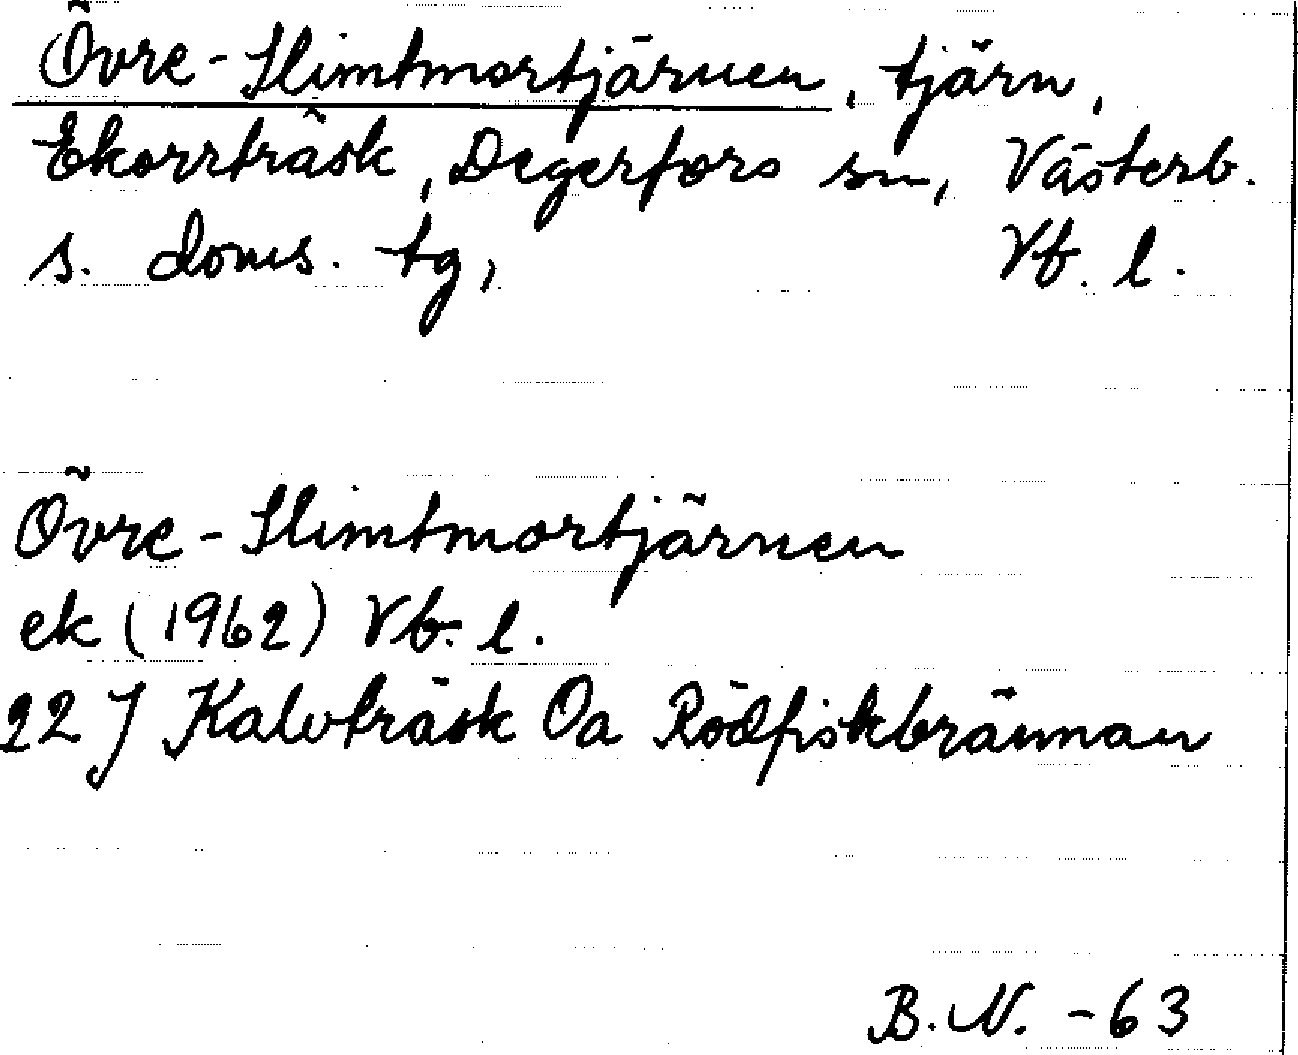 Övre-Slimtmortjärnen, tjärn,
Ekorrträsk, Degerfors sn, Västerb.
s. doms. tg, Vb. l.
Övre-Slimtmortjärnen
ek (1962) Vb. l.
22 J Kalvträsk Oa Rödfiskbrännan
B.N. -63